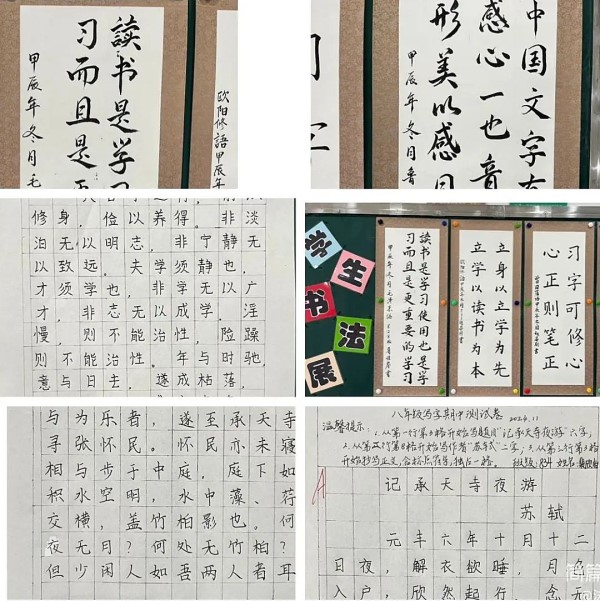 读书是学习
习而且是更
甲辰年冬月毛
欧阳修语甲辰年
中国文字有
感心一也音
形美以感目
甲辰年冬月鲁
修身,俭以养得。非淡
泊无以明志,非宁静无
以致远。夫学须静也,
才须学也,非学无以广
才,非志无以成学,淫
慢,则不能治性,险躁
则不能治性。年与时驰,
意与日去,遂成枯落,
学生
书法
展
读书是学习使用也是学
习而且是更重要的学习
立身以立学为先
立学以读书为本
习字可修心
心正则笔正
与为乐者,遂至承天寺
寻张怀民。怀民亦未寝
相与步于中庭,庭下如
积水空明,水中藻、荇
交横,盖竹柏影也。何
夜无月?何处无竹柏?
但少闲人如吾两人者耳
八年级写字期中测试卷
2024.11
温馨提示:1.从第一行第4格开始写题目"记承天寺夜游"六字,
A
记承天寺夜游
苏轼
元丰六年十月十二
日夜,解衣欲睡,月色
入户,欣然起行。念无